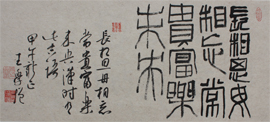 長相思毋
相忘常
貴富樂
未央
長相思毋相忘
常貴富樂
未央漢時
語
甲午
王